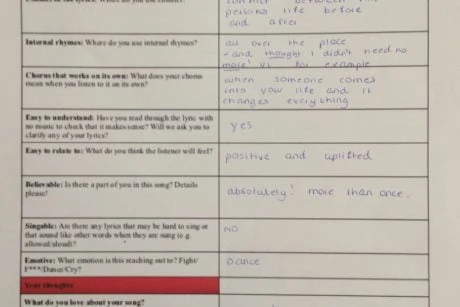 persons life before
and after
Internal rhymes: Where do you use internal rhymes?
all over the place
- and thought I didn't need no
more' V1 for example
Chorus that works on its own: What does your chorus
mean when you listen to it on its own?
when someone comes
into your life and it
changes everything
Easy to understand: Have you read through the lyric with
no music to check that it makes sense? Will we ask you to
clarify any of your lyrics?
yes
Easy to relate to: What do you think the listener will feel?
positive and uplifted.
Believable: Is there a part of you in this song? Details
please!
absolutely! more than once.
Singable: Are there any lyrics that may be hard to sing or
that sound like other words when they are sung (e.g.
allowed/aloud)?
NO
Emotive: What emotion is this reaching out to? Fight/
F***/Dance/Cry?
Dance
Your thoughts
What do you love about your song?